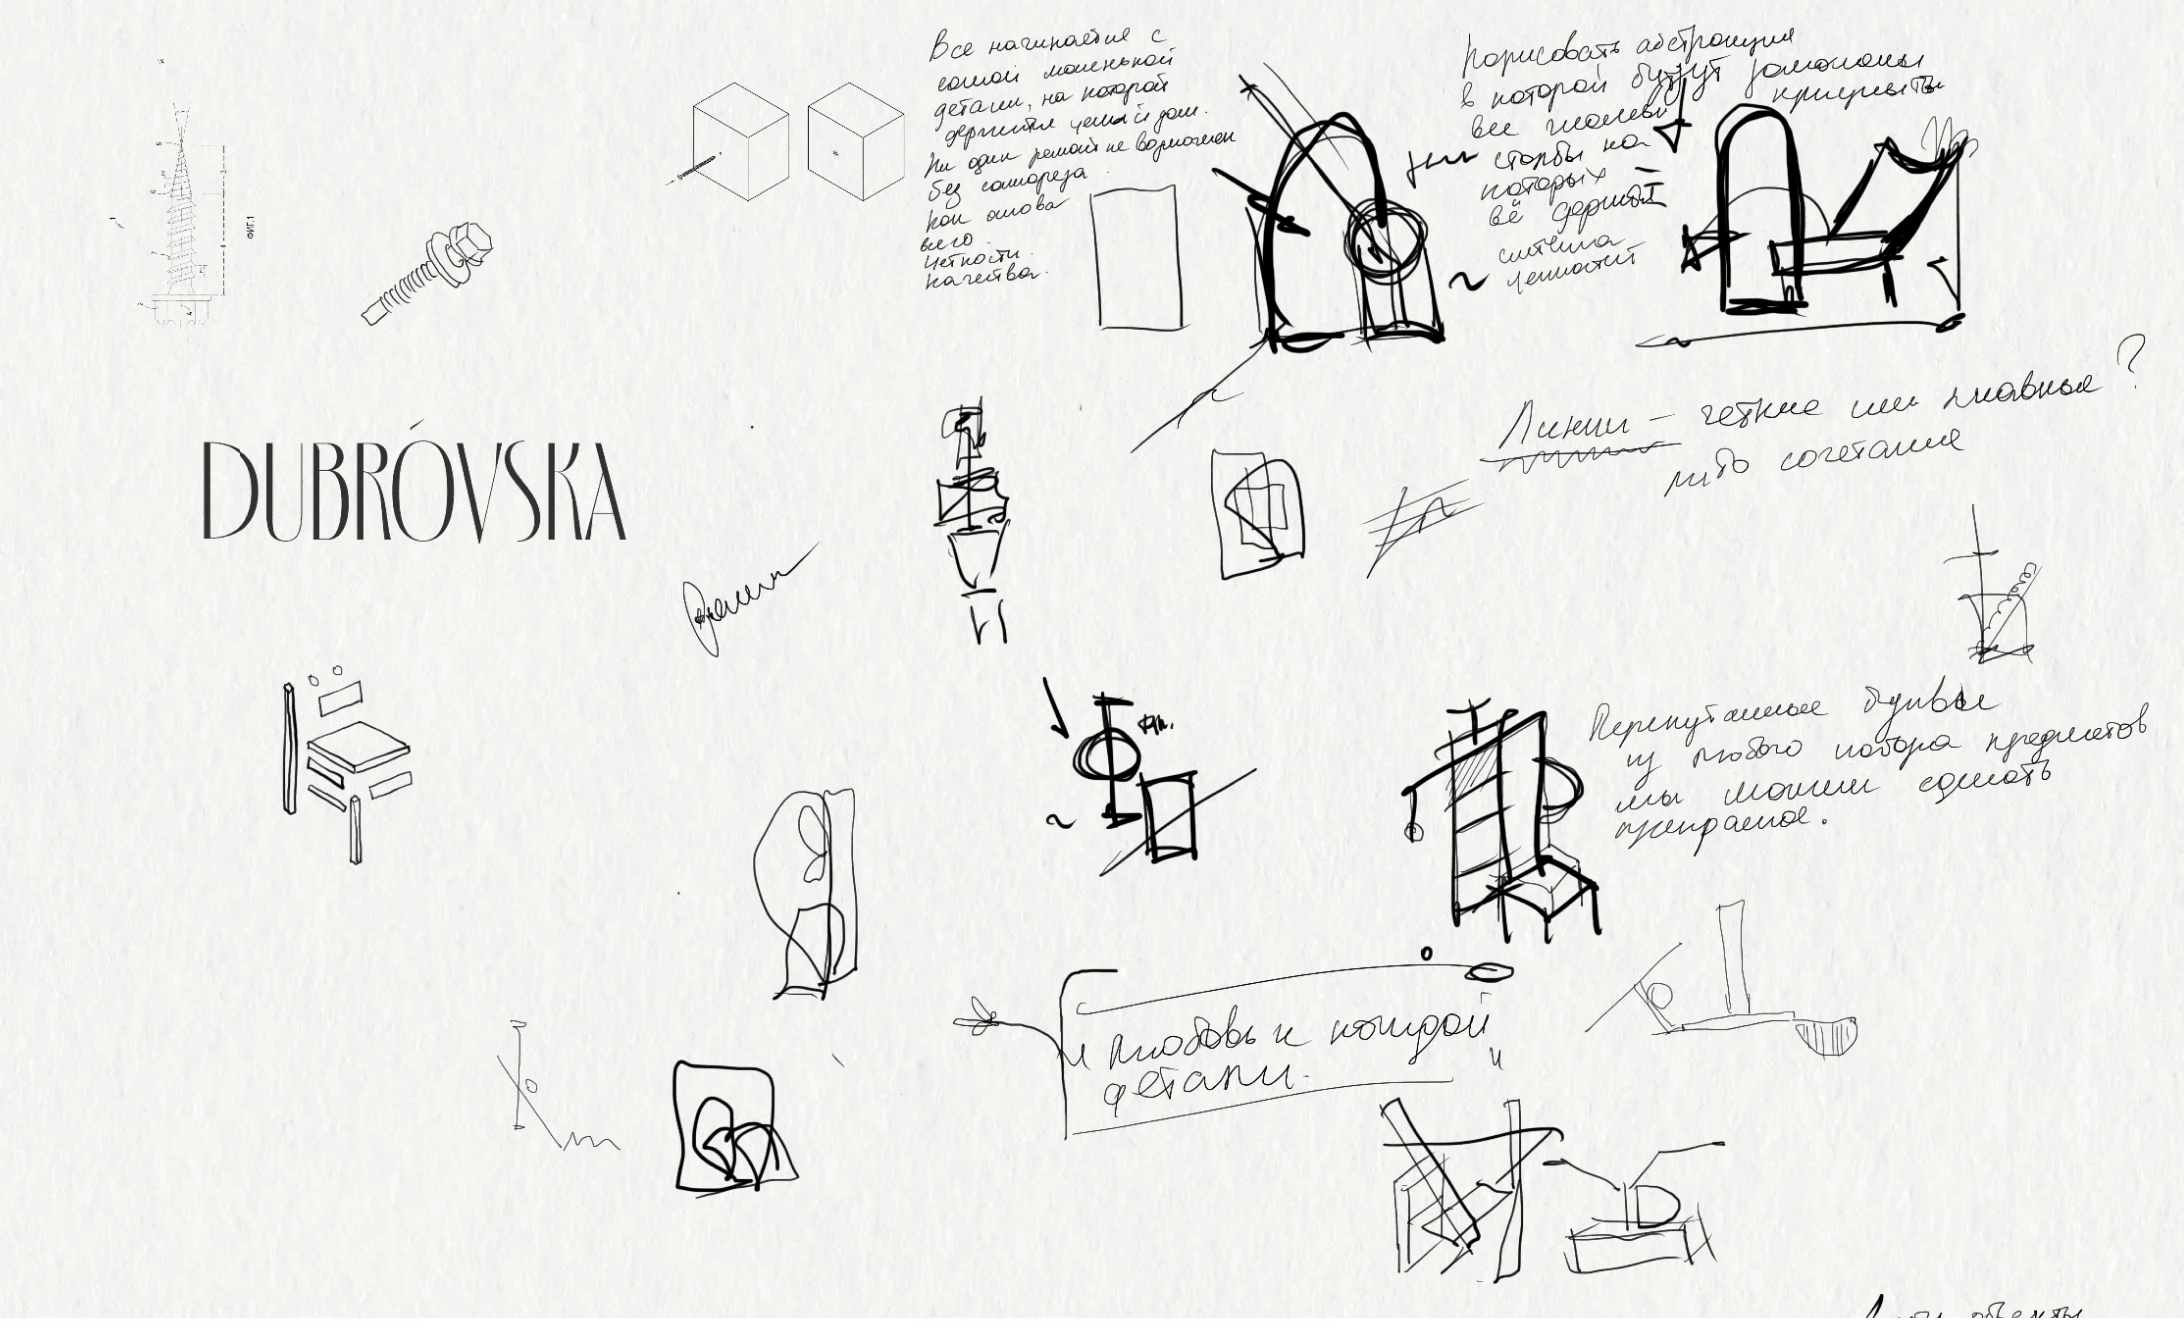 Все начинается с
самой маленькой
детали, на которой
держится целый дом.
Ни один ремонт не возможен
без самореза
как основа
всего
четкости
качества.
Нарисовать абстракция
в которой будут заложены
все главные приоритеты
столбы на
которых
всё держится
система
ценностей
ФИГ.1
Линии – четкие или плавные?
либо сочетание
DUBRÓVSKA
Перепутанные буквы
из любого набора предметов
мы можем сделать
прекрасное.
Любовь к каждой
детали.
объекты